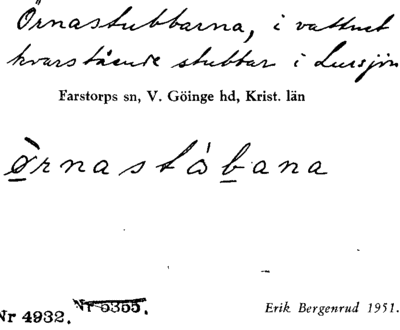 Örnastubbarna, i vattnet
kvarstående stubbar i Lursjön
Farstorps sn, V. Göinge hd, Krist. län
ò̱rnastȧḇana
Nr 5355.
Nr 4932.
Erik Bergenrud 1951.